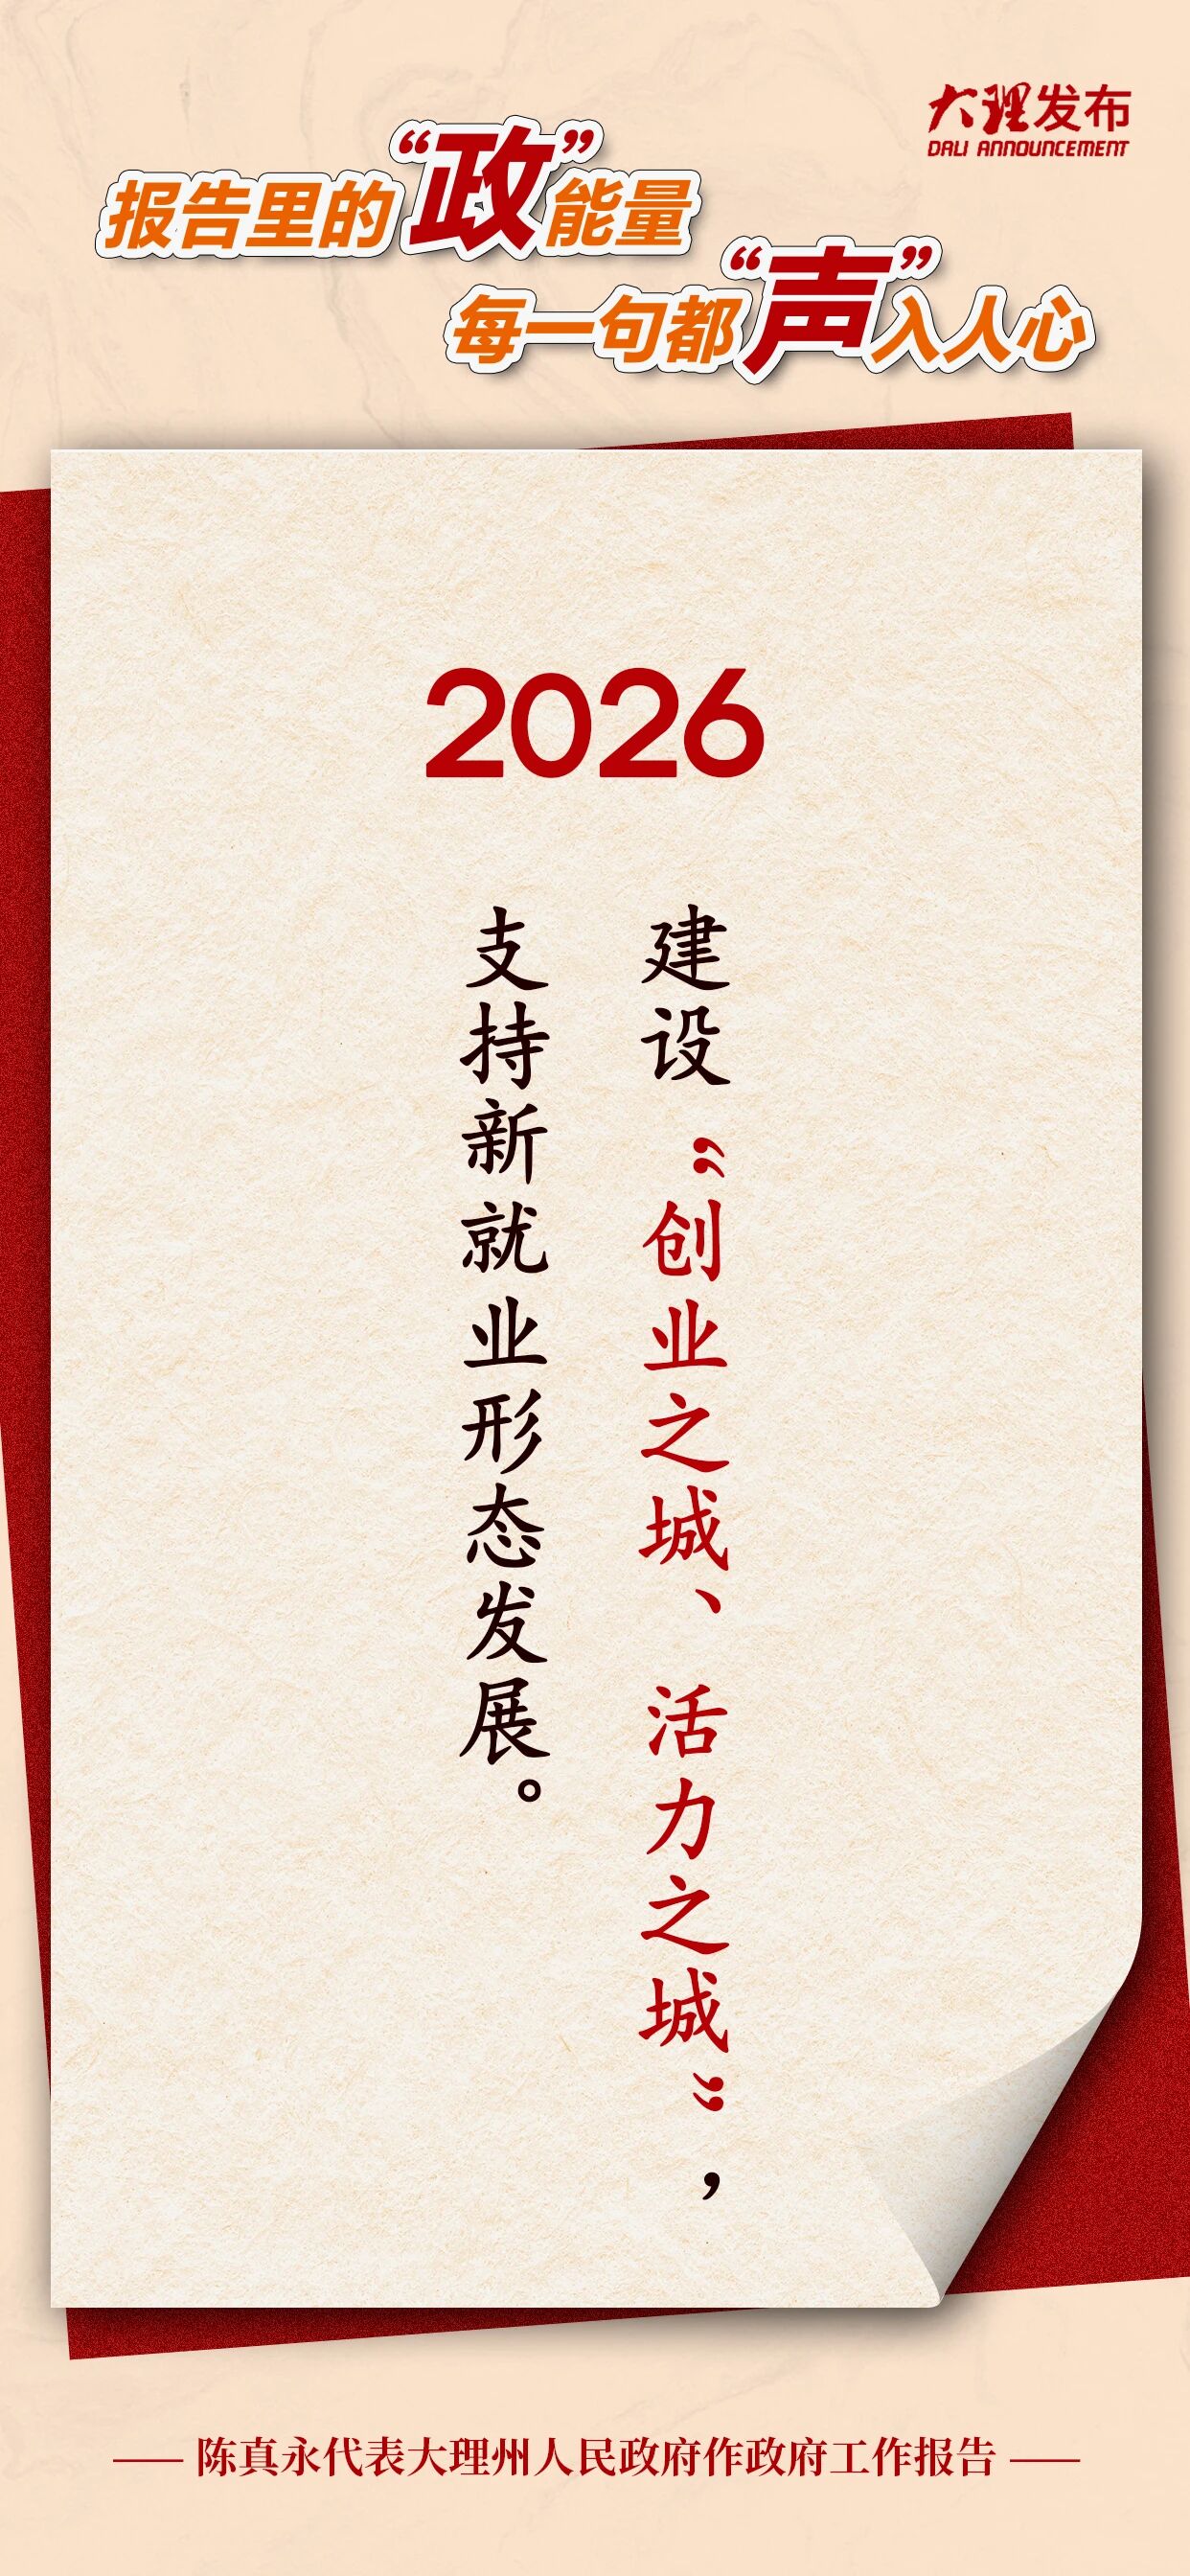 大理发布
DALI ANNOUNCEMENT
报告里的“政”能量
每一句都“声”入人心
2026
建设“创业之城、活力之城”，
支持新就业形态发展。
——陈真永代表大理州人民政府作政府工作报告——